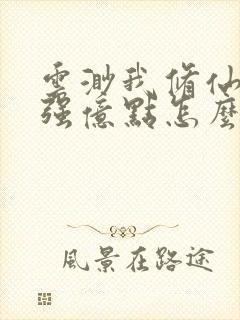 雲渺我修仙
強億點怎麼
風景在路途